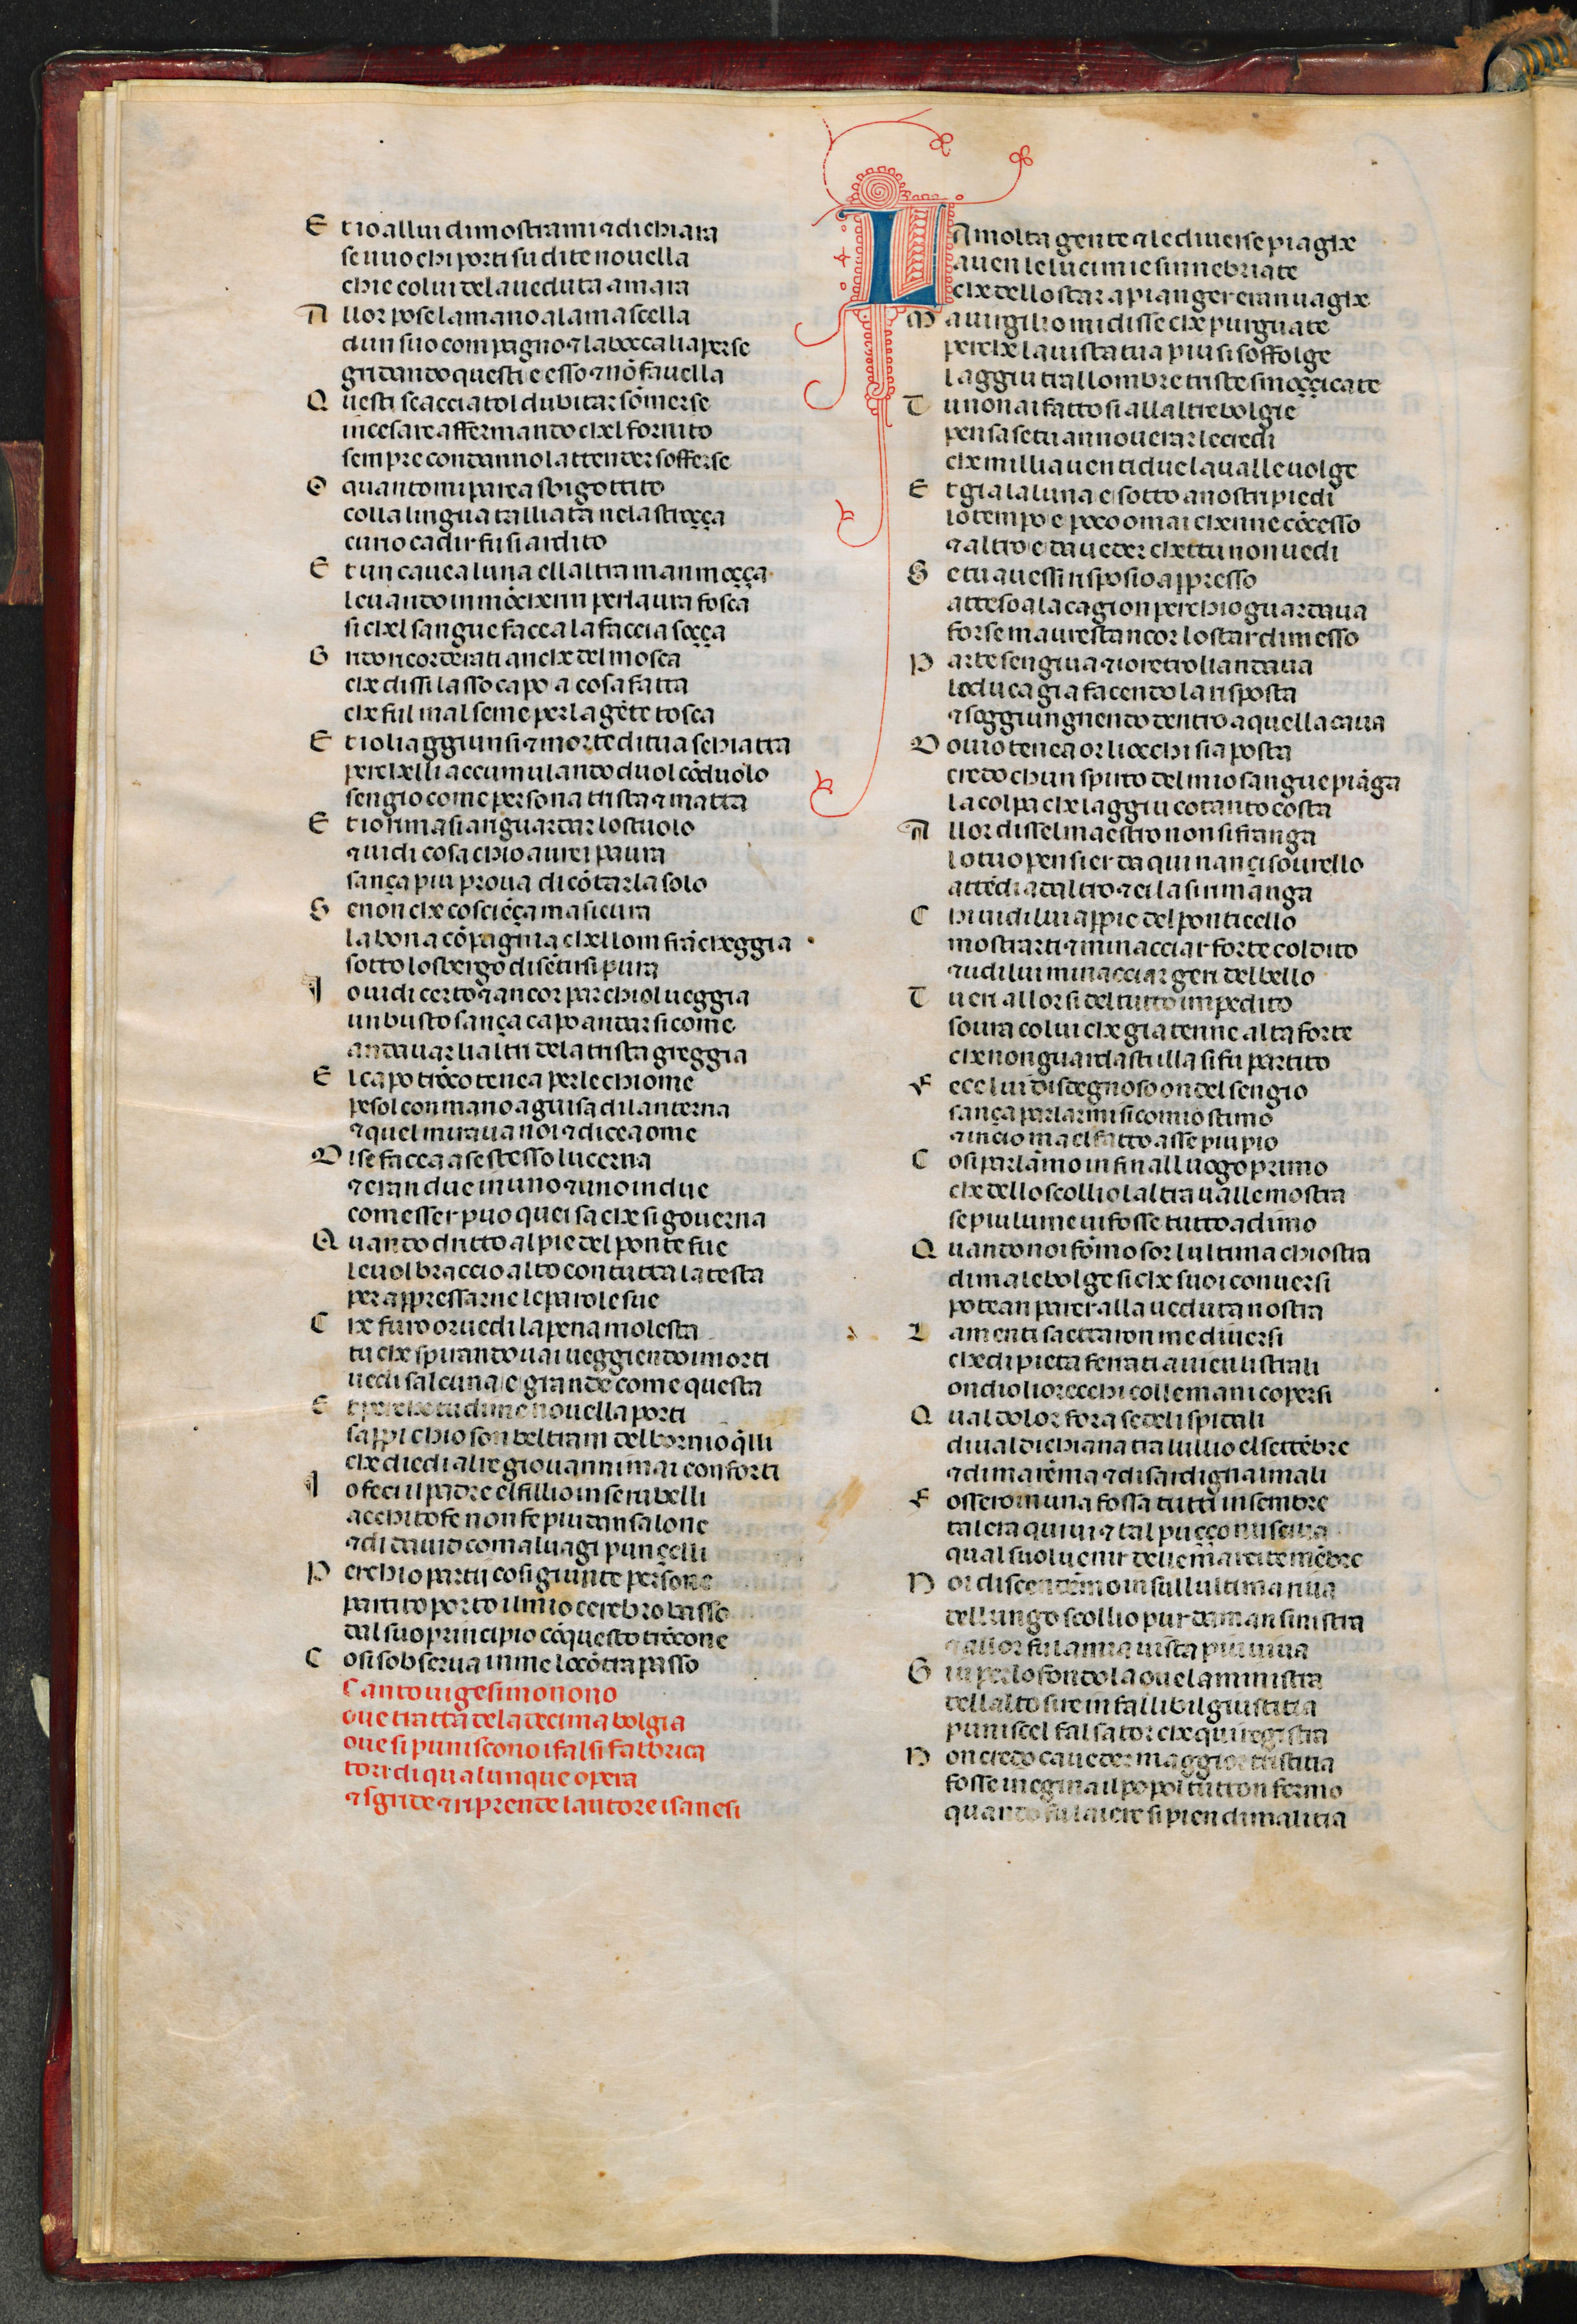 E t io allui dimostrami ⁊ dichiara
se uuo chi porti su di te nouella
chi e colui dela ueduta amara
A llor pose la mano a la mascella
dun suo compagno ⁊ la bocca li aperse
gridando questi e esso ⁊ nõ fauella
Q uesti scacciatol dubitar sõmerse
in cesare affermando chel fornito
sempre con danno lattender sofferse
O quanto mi parea sbigottito
colla lingua talliata nela stroçça
curio ca dir fu si ardito
E t un cauea luna ellaltra man moçça
leuando in mõcherin per laura fosca
si chel sangue facea la faccia soçça
G ridon corderati anche del mosca
che dissi lasso capo a cosa fatta
che ful mal seme per la gẽte tosca
E t io li aggiunsi ⁊ morte di tua schiatta
perchelli accumulando duol cõ duolo
sengio come persona trista ⁊ matta
E t io rimasi an guardar lo stuolo
⁊ uidi cosa chio aurei paura
sança piu proua di cõtarla solo
S e non che cosciẽça masicura
la bona cõpagnia chellom frãcheggia
sotto losbergo di sẽtirsi pura
I o uidi certo ⁊ ancor par chiol ueggia
un busto sança capo andar si come
andauar li altri de la trista greggia
E l capo trõco tenea per le chiome
pesol con mano a guisa di lanterna
⁊ quel miraua noi ⁊ dicea o me
D i se facea a se stesso lucerna
⁊ eran due in uno ⁊ uno in due
com esser puo quei sa che si gouerna
Q uando dritto al pie del ponte fue
leuol braccio alto con tutta la testa
per appressarne le parole sue
C he furo or uedi la pena molesta
tu che spirando uai ueggiendo i morti
uedi salcuna e grande come questa
E t perche tu di me nouella porti
sappi chio son beltram dal bornio q̃lli
che diedi al re giouanni mai conforti
I o feci il padre el fillio in se ribelli
acchitofe non fe piu dansalone
⁊ di dauid co maluagi punçelli
P erchio partii cosi giunte persone
partito porto il mio cerebro lasso
dal suo principio cõ questo trõcone
C osi sobserua in me lo cõtrapasso
Canto uigesimonono
oue tratta de la decima bolgia
oue si puniscono i falsi fabbrica
tori di qualunque opera
⁊ sgride ⁊ riprende lautore i sanesi
L A molta gente ⁊ le diuerse piaghe
auen le luci mie si innebriate
che dello star a pianger eran uaghe
M a uirgilio mi disse che pur guate
perche la uista tua piu si soffolge
laggiu tra llombre triste smoççicate
T u non ai fatto si all altre bolgie
pensa se tu annouerar le credi
che millia uentidue la ualle uolge
E t gia la luna e sotto a nostri piedi
lo tempo e poco omai chenne cõcesso
⁊ altro e da ueder chettu non uedi
S e tu auessi risposio appresso
atteso a la cagion perchio guardaua
forse mauresti ancor lo star dimesso
P arte sen giua ⁊ io retro li andaua
lo duca gia facendo la risposta
⁊ soggiungnendo dentro a quella caua
D ouio tenea or li occhi si a posta
credo chun spirto del mio sangue piãga
la colpa che laggiu cotanto costa
A llor dissel maestro non si franga
lo tuo pensier da qui nançi sourello
attẽdi ad altro ⁊ ei la si rimanga
C hi uidi lui appie del ponticello
mostrarti ⁊ minacciar forte col dito
⁊ udilui minacciar geri del bello
T u eri allor si del tutto impedito
soura colui che gia tenne altaforte
che non guardasti illa si fu partito
F ece lui disdegnoso ondel sengio
sança parlarmi si comio stimo
⁊ in cio ma el fatto asse piu pio
C osi parlãmo infin al luogo primo
che dello scollio laltra ualle mostra
se piu lume ui fosse tutto ad imo
Q uando noi fõmo sor lultima chiostra
di malebolge si che suoi conuersi
potean parer alla ueduta nostra
L amenti saettaron me diuersi
che di pieta ferrati auien li strali
ondio li orecchi colle mani copersi
Q ual dolor fora se deli spidali
di ualdichiana tra lullio el settẽbre
⁊ di marẽma ⁊ di sardigna i mali
F ossero in una fossa tutti in sembre
tal era quiui ⁊ tal puçço nusciua
qual suol uenir delle marcite mẽbre
N oi discendẽmo in sull ultima riua
del lungo scollio pur da man sinistra
⁊ allor fu la mia uista piu uiua
G iu per lo fondo la oue la ministra
dell alto sire infallibil giustitia
puniscel falsator che qui registra
N on credo ca ueder maggior tristitia
fosse in egina il popol tutto nfermo
quando fu laiere si pien di malitia